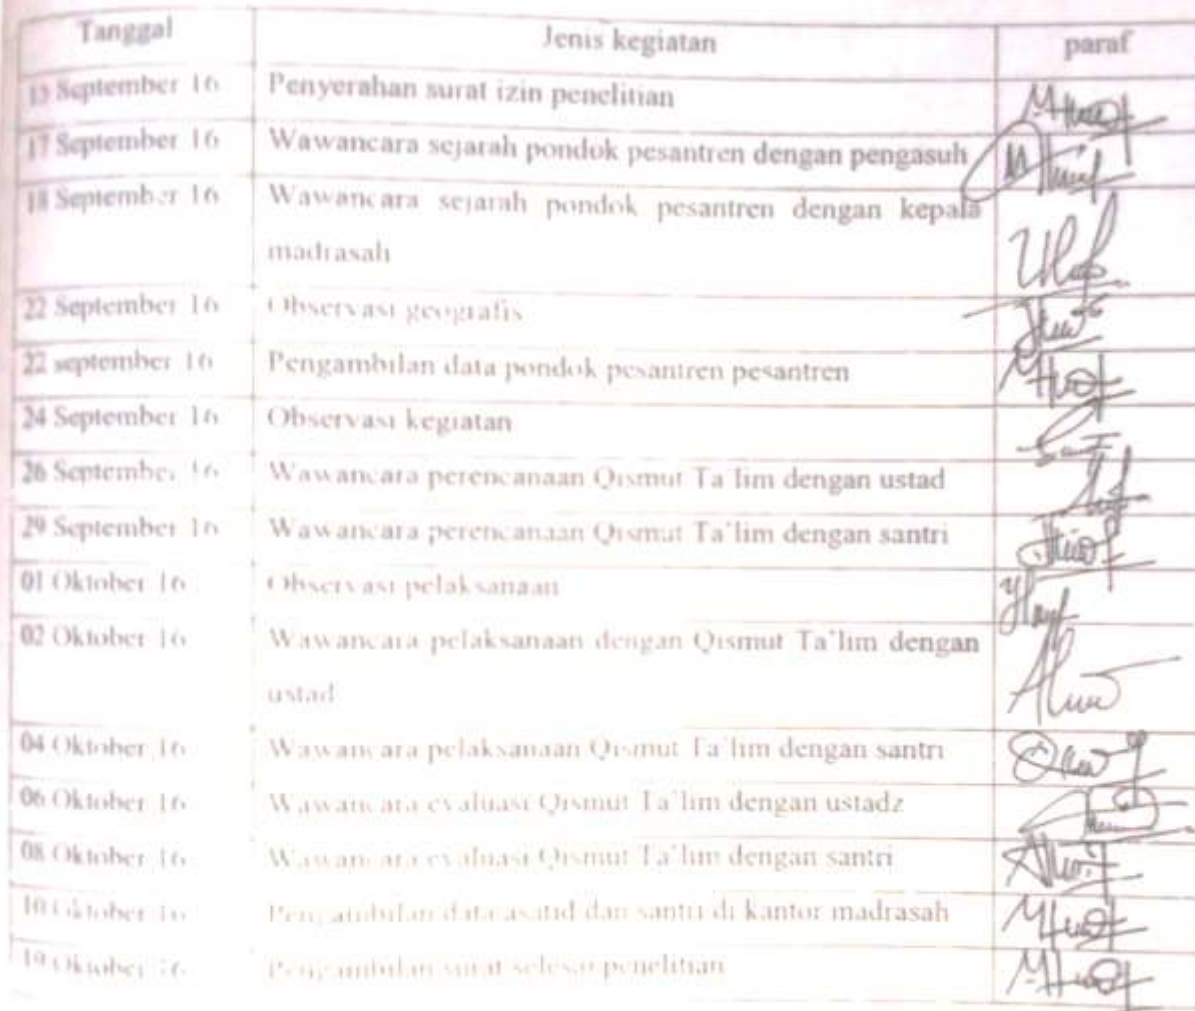 Tanggal Jenis kegiatan paraf
15 September 16 Penyerahan surat izin penelitian
17 September 16 Wawancara sejarah pondok pesantren dengan pengasuh
18 September 16 Wawancara sejarah pondok pesantren dengan kepala
madrasah
22 September 16 Observasi geografis
22 september 16 Pengambilan data pondok pesantren pesantren
24 September 16 Observasi kegiatan
26 September 16 Wawancara perencanaan Qismut Ta'lim dengan ustad
29 September 16 Wawancara perencanaan Qismut Ta'lim dengan santri
01 Oktober 16 Observasi pelaksanaan
02 Oktober 16 Wawancara pelaksanaan dengan Qismut Ta'lim dengan
ustad
04 Oktober 16 Wawancara pelaksanaan Qismut Ta'lim dengan santri
06 Oktober 16 Wawancara evaluasi Qismut Ta'lim dengan ustadz
08 Oktober 16 Wawancara evaluasi Qismut Ta'lim dengan santri
10 Oktober 16 Pengambilan data asatid dan santri di kantor madrasah
19 Oktober 16 Pengambilan surat selesai penelitian